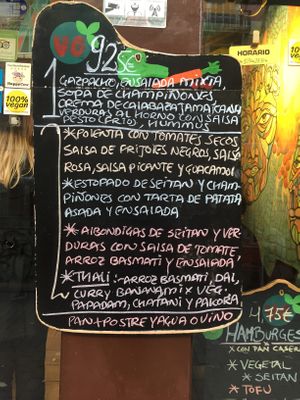 9'25€
1
GAZPACHO, ENSALADA MIXTA
SOPA DE CHAMPIÑONES
CREMA DE CALABAZA JAMAICANA
VERDURAS AL HORNO CON SALSA
PESTO (CERTO), HUMMUS
*POLENTA CON TOMATES SECOS
SALSA DE FRIJOLES NEGROS, SALSA
ROSA, SALSA PICANTE y GUACAMOL
*ESTOPADO DE SEITAN y CHAM-
PIÑONES CON TARTA DE PATATA
ASADA y ENSALADA
*ALBONDIGAS DE SEITAN y VER-
DURAS CON SALSA DE TOMATE,
ARROZ BASMATI y ENSALADA
*THALI:-ARROZ BASMATI, DAL,
CURRY BANANA MIX VEG.
PAPADAM, CHATANI y PAKORA
PAN+POSTRE y AGUA O VINO
HORARIO
100%
vegan
100%
vegan
4,75€
HAMBURGES
*CON PAN CASER
*VEGETAL
*SEITAN
*TOFU